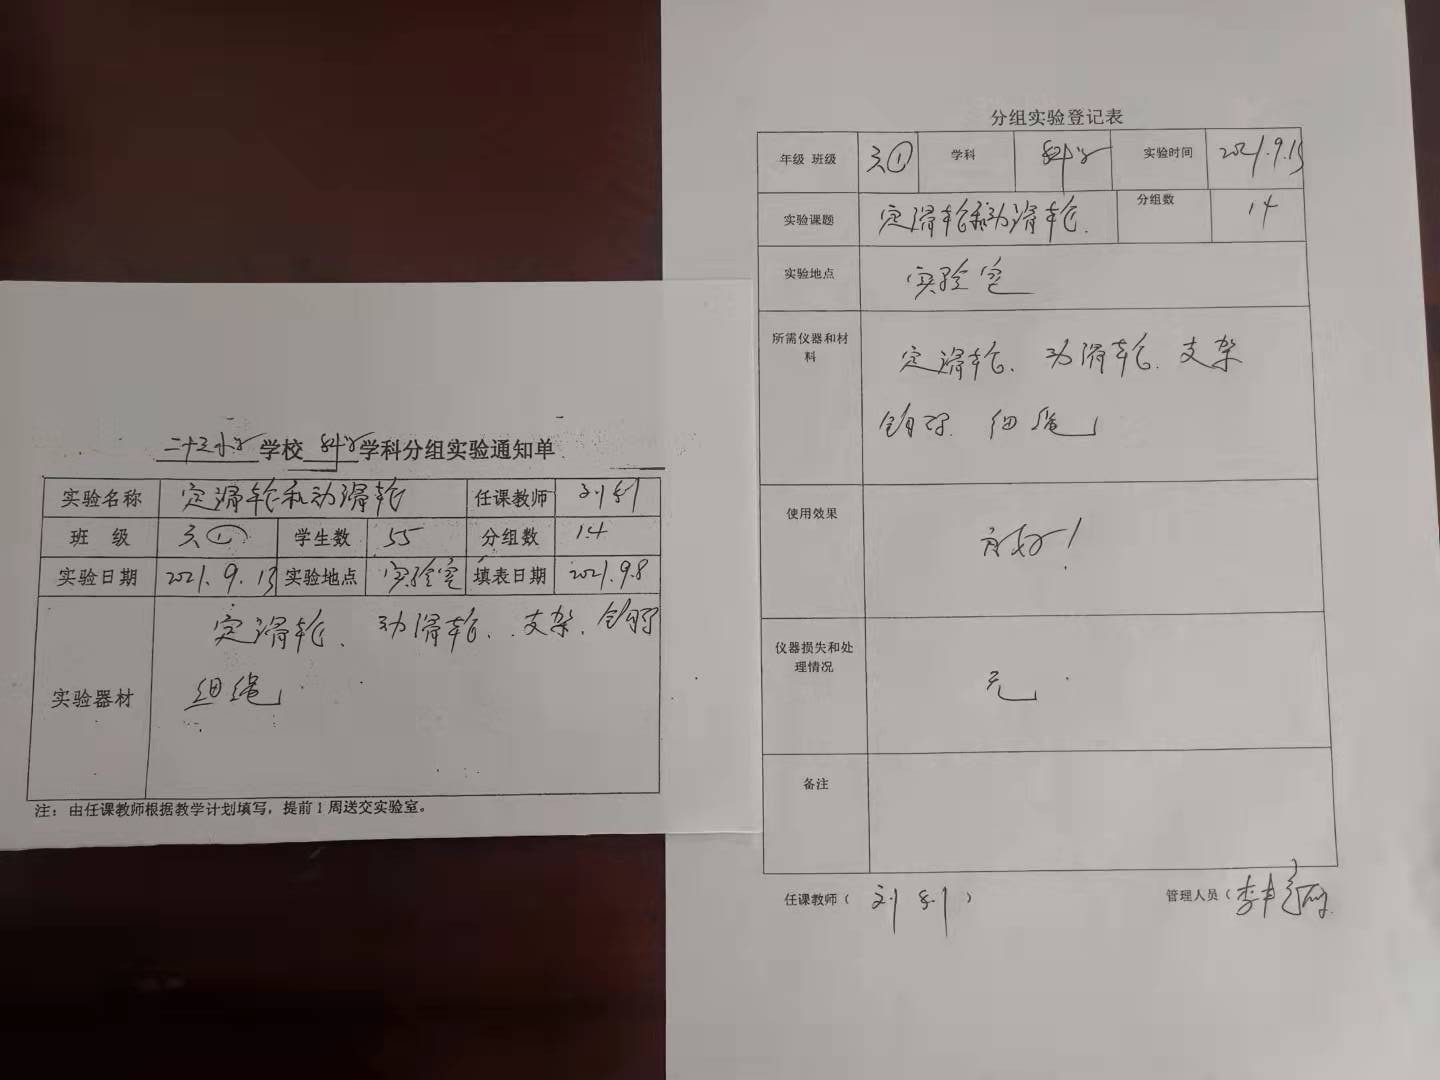 二十三小学学校 科学学科分组实验通知单
实验名称 定滑轮和动滑轮 任课教师 刘
班 级 六① 学生数 55 分组数 14
实验日期 2021.9.13 实验地点 实验室 填表日期 2021.9.8
实验器材 定滑轮、动滑轮、支架、钩码
细绳
注：由任课教师根据教学计划填写，提前1周送交实验室。
分组实验登记表
年级 班级 六① 学科 科学 实验时间 2021.9.13
实验课题 定滑轮和动滑轮. 分组数 14
实验地点 实验室
所需仪器和材料 定滑轮、动滑轮、支架
钩码、细绳
使用效果 良好！
仪器损失和处理情况 无
备注
任课教师（刘 ） 管理人员（李